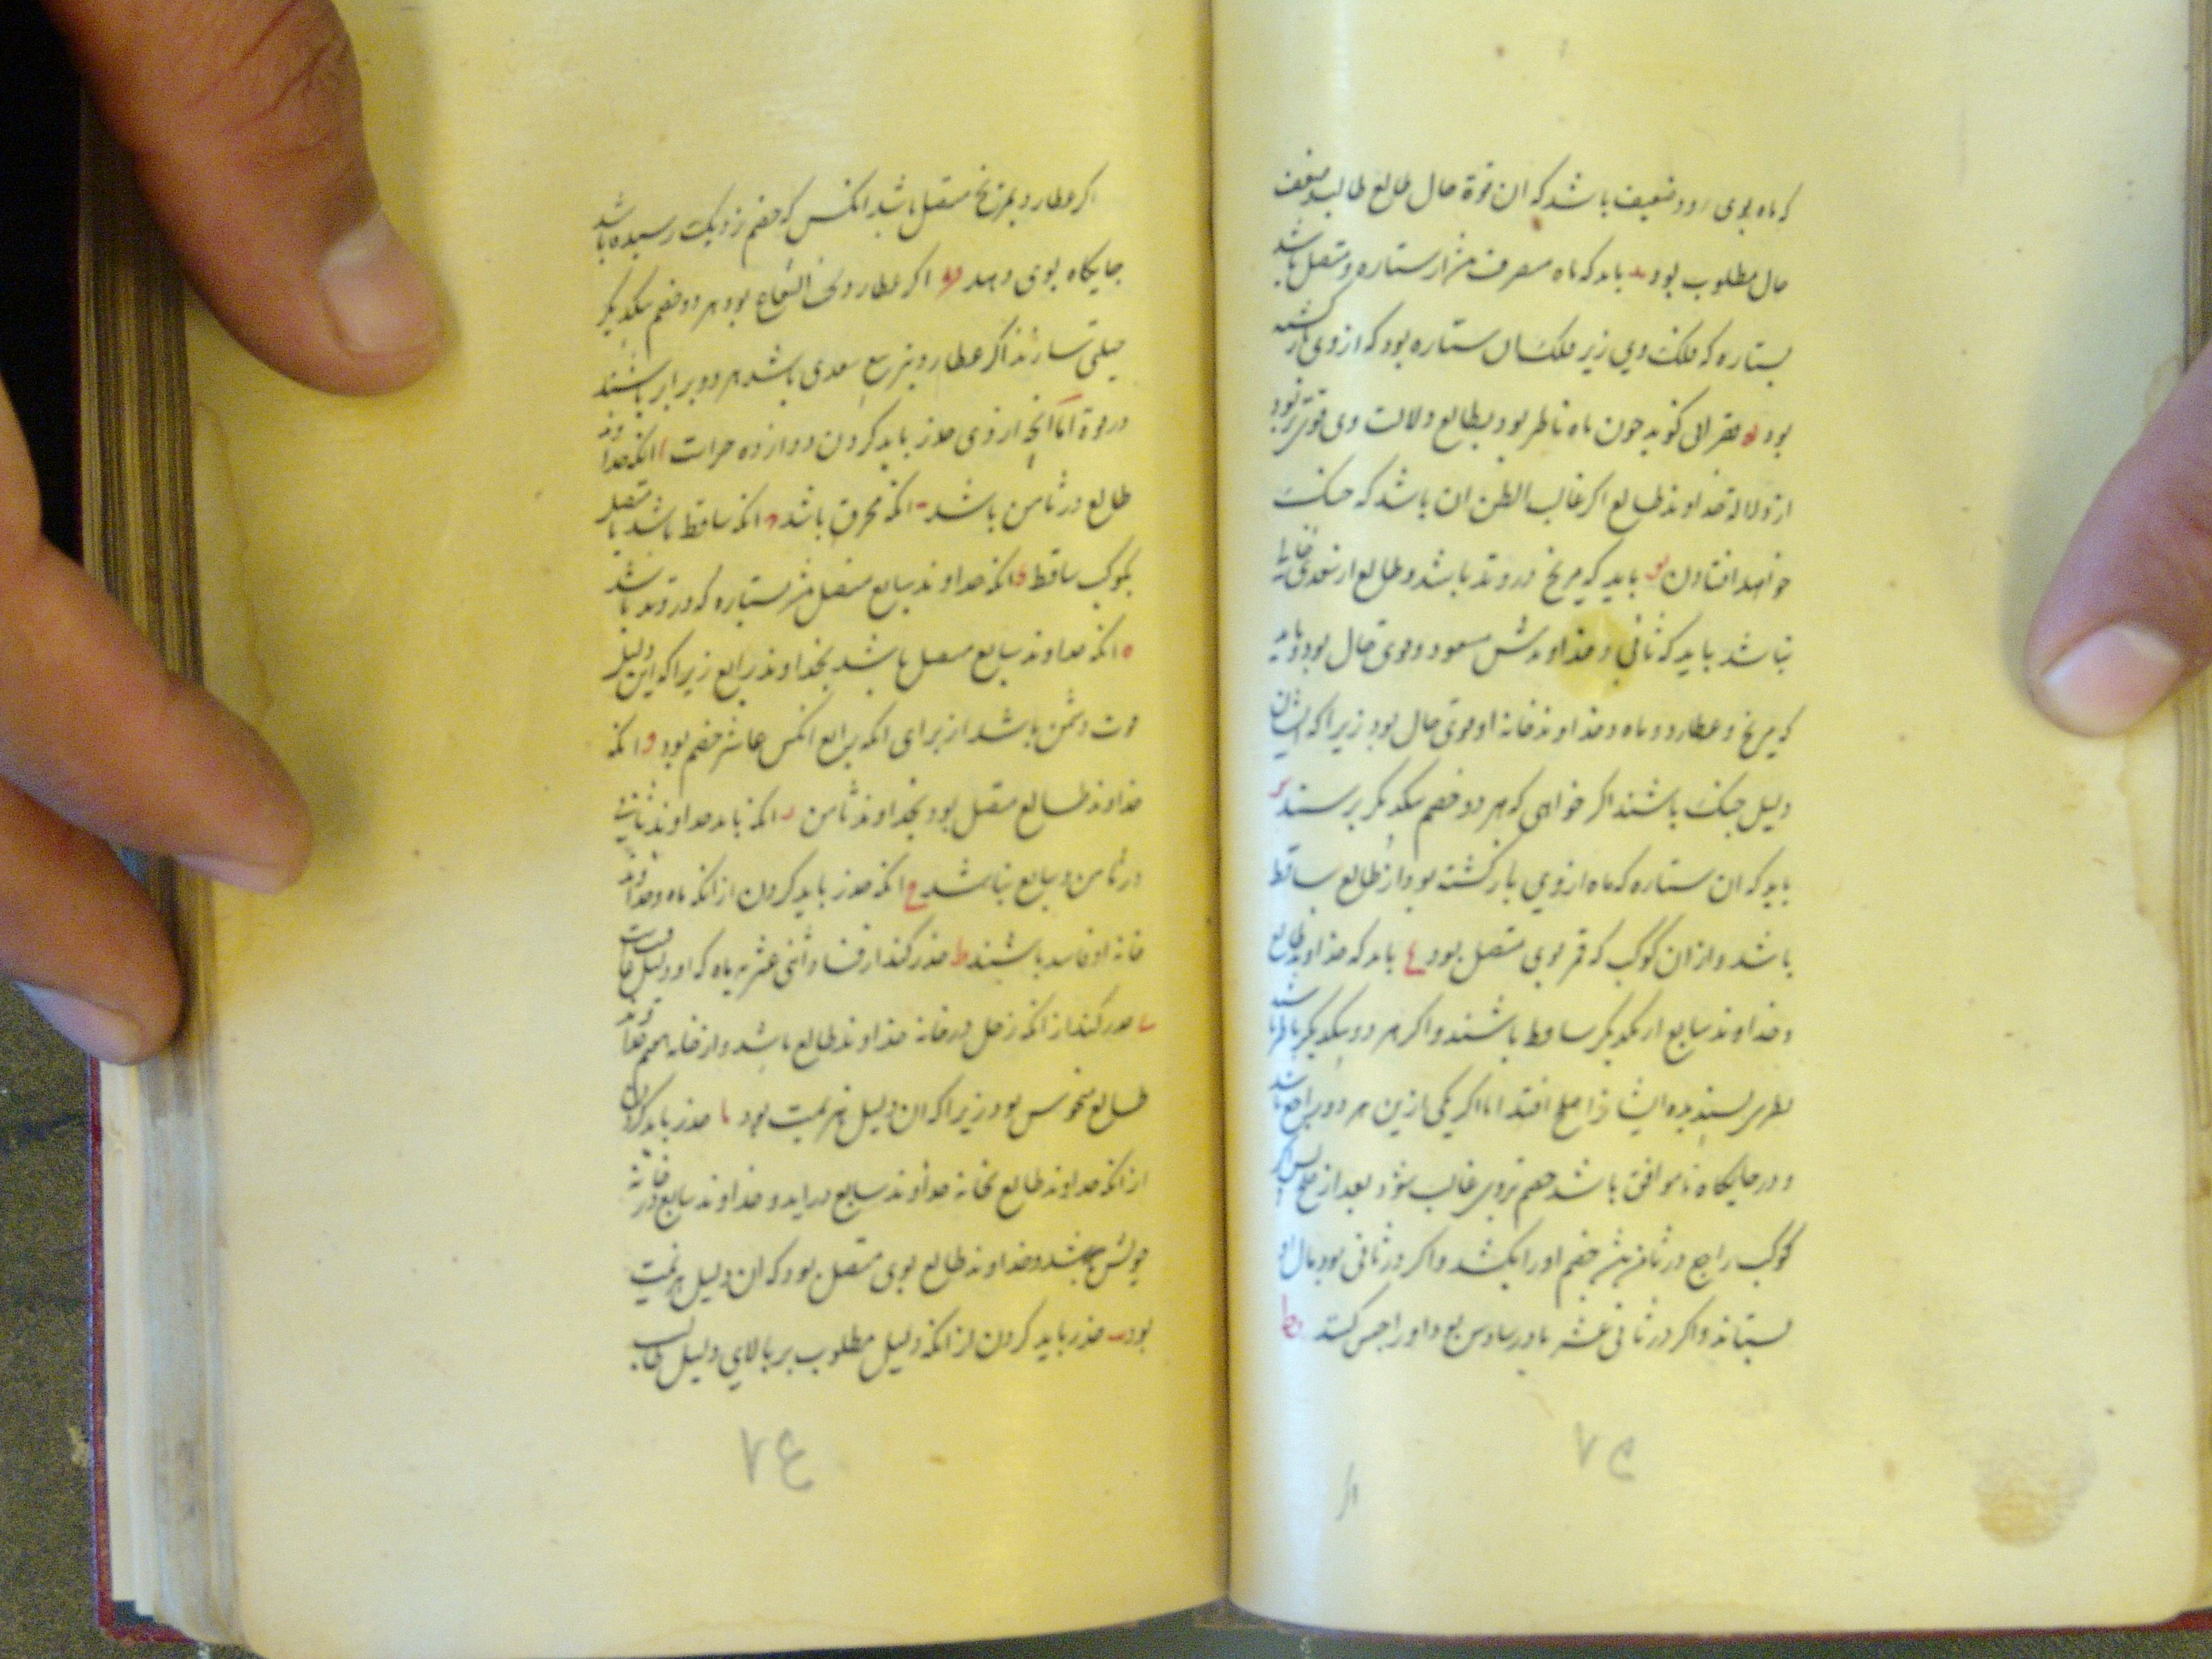 که ماه بوی رود ضعیف باشد که ان قوة حال طالع طالب وضعف
حال مطلوب بود ید باید که ماه منصرف بود از ستاره و متصل باشد
بستاره که فلک وی زیر فلک ان ستاره بود که از وی بازگشته
بود یه عمرانی گوید چون ماه ناظر بود بطالع دلالت وی قوی تر بود
از دلالة خداوند طالع اگر غالب الظن ان باشد که جنک
خواهد افتادن یو باید که مریخ در وتد باشد و طالع از سعدی خالی
نباشد باید که ثانی و خداوندش مسعود و قوی حال بود و باید
که مریخ و عطارد و ماه و خداوند خانه او قوی حال بود زیرا که ایشان
دلیل جنک باشند اگر خواهی که هر دو خصم بیکدیگر برسند یز
باید که ان ستاره که ماه از وی بازگشته بود از طالع ساقط
باشد و از ان کوکب که قمر بوی متصل بود یح باید که خداوند طالع
و خداوند سابع از یکدیگر ساقط باشند و اگر هر دو بیکدیگر ناظر باشند
نظری پسندیده ایشانرا صلح افتد اما اگر یکی ازین هر دو راجع باشد
و در جایگاه ناموافق باشد خصم بروی غالب شود بعد از صلح پس اگر
کوکب راجع در ثامن بود خصم او را بکشد و اگر در ثانی بود مال او
بستاند و اگر در ثانی عشر یا در سادس بود او را حبس کند یط
۷۵
اگر
اگر عطارد بمریخ متصل باشد انکس که خصم نزدیک رسیده باشد
جایگاه بوی دهد که اگر عطارد تحت الشعاع بود هر دو خصم بیکدیگر
حیلی سازند اگر عطارد بتربیع سعدی باشد هر دو برابر باشند
در قوة اما انچه از وی حذر باید کردن دوازده جزات ا انکه خداوند
طالع در ثامن باشد ب انکه محرق باشد ج انکه ساقط باشد یا متصل
بکوکب ساقط د انکه خداوند سابع متصل بود بستاره که در وتد باشد
ه انکه خداوند سابع متصل باشد بخداوند رابع زیرا که این دلیل
قوت دشمن باشد از برای انکه رابع انکس عاشر خصم بود و انکه
خداوند طالع متصل بود بخداوند ثامن ز انکه باید خداوند ثانی
در ثامن و سابع نباشد ح انکه حذر باید کردن از انکه ماه و خداوند
خانه او فاسد باشند ط حذر کند از فساد اثنی عشریه ماه که او دلیل عاقبتست
ی حذر کند از انکه زحل در خانه خداوند طالع باشد و از خانه هفتم خداوند
طالع منحوس بود زیرا که ان دلیل هزیمت بود یا حذر باید کردن
از انکه خداوند طالع بخانه خداوند سابع دراید و خداوند سابع در خانه
خویش باشد و خداوند طالع بوی متصل بود که ان دلیل هزیمت
بود یب حذر باید کردن از انکه دلیل مطلوب بر بالای دلیل طالب
۷۶